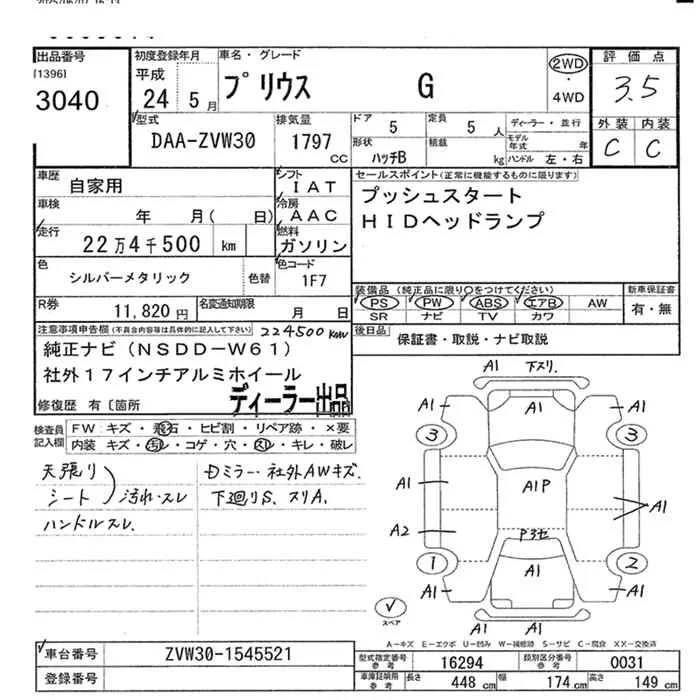 出品番号 初度登録年月 車名・グレード 評価点
[1396] 平成
3040 24 5月 プリウス G 2WD・4WD 3.5
型式 排気量 ドア 定員 ディーラー・並行 外装 内装
DAA-ZVW30 1797 CC 5 5人 モデル年式 年 C C
形状 ハッチB 積載 kg ハンドル 左・右
車歴 自家用 シフト IAT セールスポイント(正常に機能するものに限ります)
車検 年 月( 日) 冷房 AAC プッシュスタート
走行 22万4千500 km 燃料 ガソリン HIDヘッドランプ
色 シルバーメタリック 色替 色コード 1F7
装備品(純正品に限り〇をつけてください) 新車保証書
R券 11,820円 名変通知期限 月 日 PS PW ABS エアB AW 有・無
SR ナビ TV カワ
注意事項申告欄(不具合内容等は具体的に記入して下さい) 224500km 後日品 保証書・取説・ナビ取説
純正ナビ(NSDD-W61)
社外17インチアルミホイール
修復歴 有〔箇所 ディーラー出品
検査員記入欄 FW:キズ・飛石・ヒビ割・リペア跡・×要
内装 キズ・汚レ・コゲ・穴・スレ・キレ・破レ
天張り
シート 汚れ・スレ
ハンドルスレ
Dミラー・社外AWキズ.
下廻りS. スリA.
A1 下スリ.
A1 A1 A1
3 3
A1 A1P A1
A2 P3セ
1 A1 2
A1 A1
スペア
A1 A1
A-キズ E-エクボ U-凹み W-補修跡 S-サビ C-腐食 XX-交換済
車台番号 ZVW30-1545521
登録番号
型式指定番号 参考 16294 類別区分番号 参考 0031
車庫証明用 参考 長さ 448cm 幅 174cm 高さ 149cm